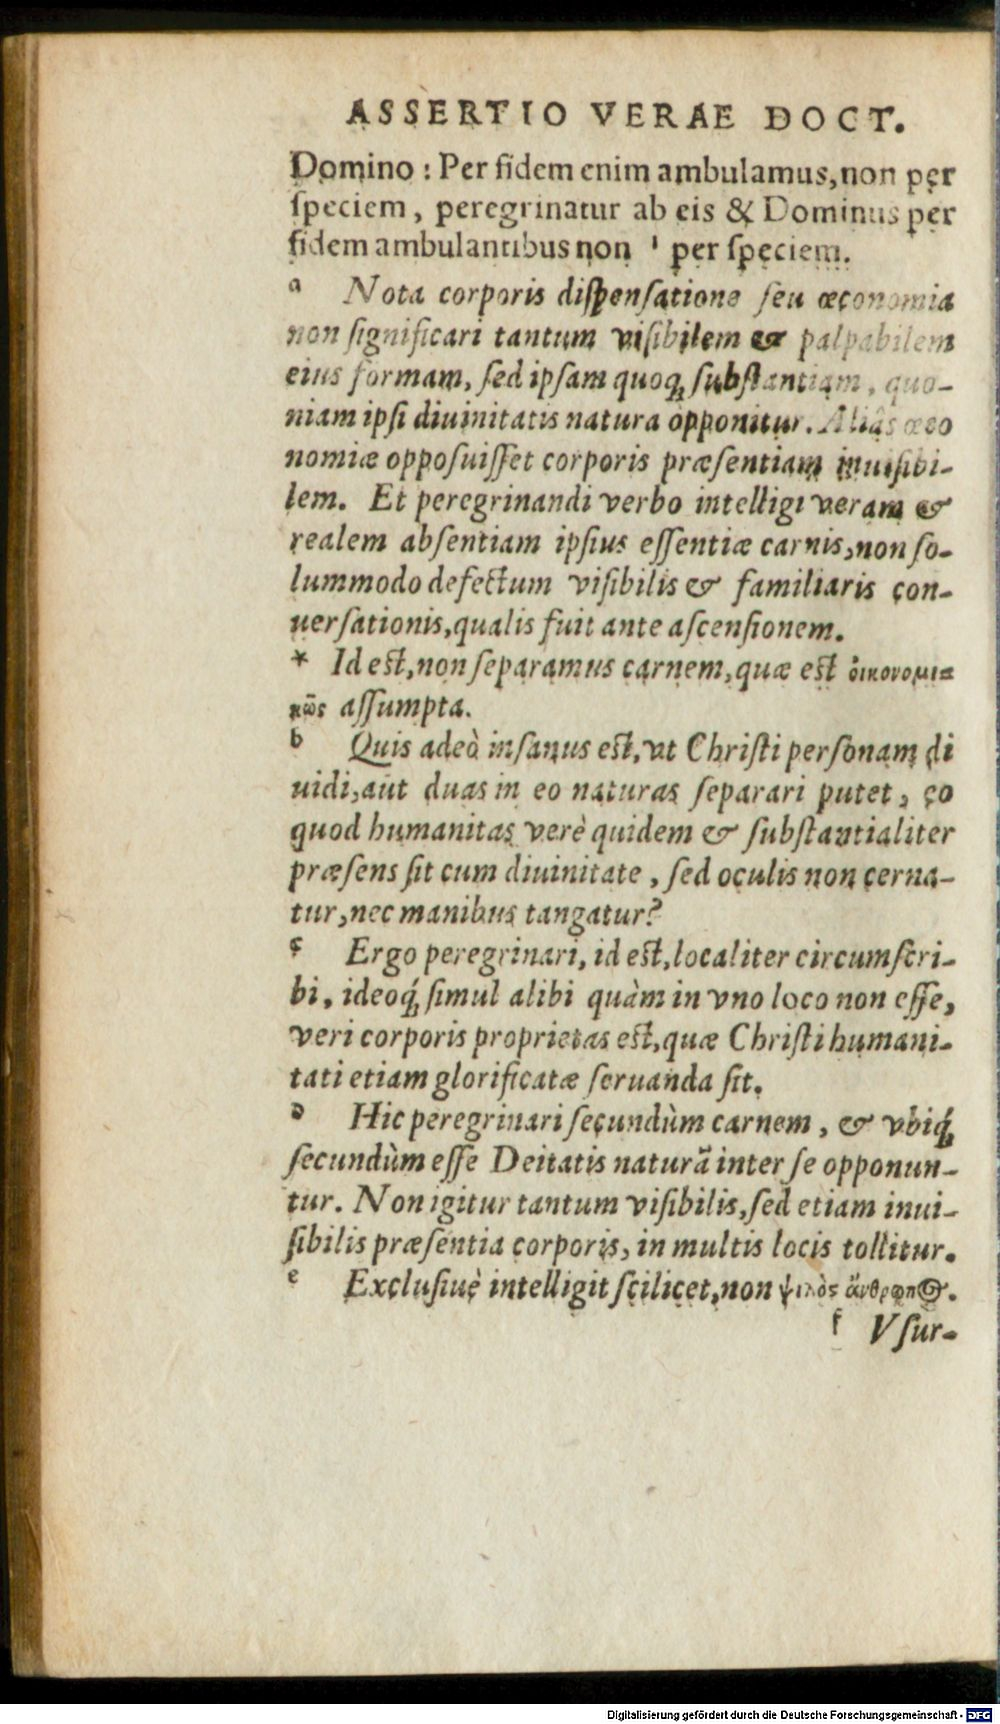 ASSERTIO VERAE DOCT.
Domino : Per fidem enim ambulamus, non per
ſpeciem, peregrinatur ab eis & Dominus per
fidem ambulantibus non ¹ per ſpeciem.
a Nota corporis diſpenſatione ſeu œconomia
non ſignificari tantum viſibilem & palpabilem
eius formam, ſed ipſam quoq; ſubſtantiam, quo-
niam ipſi diuinitatis natura opponitur. Aliâs œco
nomiæ oppoſuiſſet corporis præſentiam inuiſibi-
lem. Et peregrinandi verbo intelligi veram &
realem abſentiam ipſius eſſentiæ carnis, non ſo-
lummodo defectum viſibilis & familiaris con-
uerſationis, qualis fuit ante aſcenſionem.
* Id eſt, non ſeparamus carnem, quæ eſt οἰκονομια
κῶς aſſumpta.
b Quis adeò inſanus eſt, vt Chriſti perſonam di
uidi, aut duas in eo naturas ſeparari putet, eo
quod humanitas verè quidem & ſubſtantialiter
præſens ſit cum diuinitate, ſed oculis non cerna-
tur, nec manibus tangatur?
c Ergo peregrinari, id eſt, localiter circumſcri-
bi, ideoq́; ſimul alibi quàm in vno loco non eſſe,
veri corporis proprietas eſt, quæ Chriſti humani-
tati etiam glorificatæ ſeruanda ſit.
d Hic peregrinari ſecundùm carnem, & vbiq́;
ſecundùm eſſe Deitatis naturā inter ſe opponun-
tur. Non igitur tantum viſibilis, ſed etiam inui-
ſibilis præſentia corporis, in multis locis tollitur.
e Excluſiuè intelligit ſcilicet, non ψιλὸς ἄνθρωπος.
f Vſur-
Digitalisierung gefördert durch die Deutsche Forschungsgemeinschaft - DFG